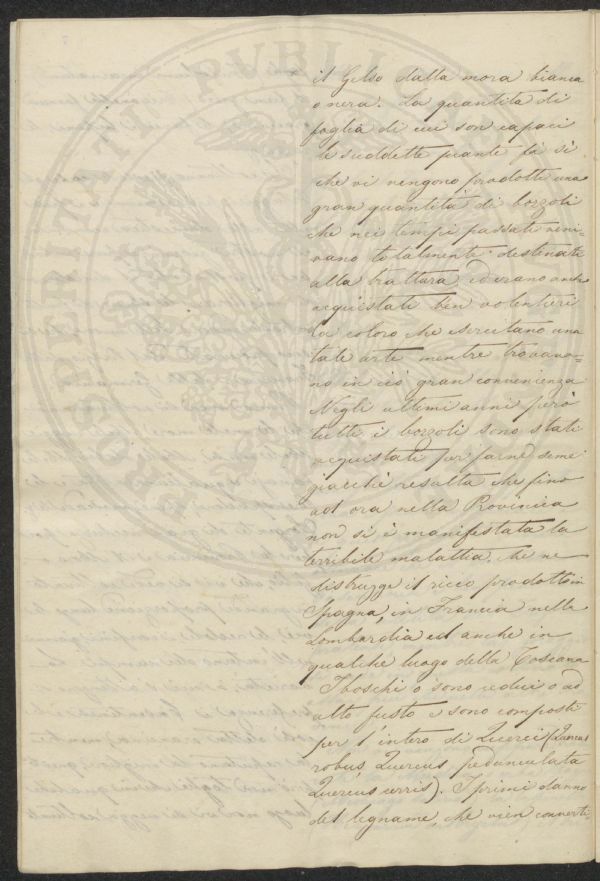 il Gelso dalla mora bianca
o nera. La quantità di
foglia di cui son capaci
le suddette piante fà sì
che vi vengono prodotti una
gran quantità di bozzoli
che nei tempi passati veni=
vano totalmente destinati
alla trattura, ed erano anche
acquistati ben volentieri
da coloro che esercitano una
tale arte mentre trovava=
no in ciò gran convenienza
Negli ultimi anni però
tutti i bozzoli sono stati
acquistati per farne seme
giacchè resulta che fino
ad ora nella Provincia
non si è manifestata la
terribile malattia, che ne
distrugge il ricco prodotto in
Spagna, in Francia nella
Lombardia ed anche in
qualche luogo della Toscana
I boschi o sono cedui o ad
alto fusto e sono composti
per l'intero di Querci (Quercus
robus, Quercus pedunculata
Quercus cerris). I primi danno
del legname, che vien converti-
POSTERITATI PVBLICAE